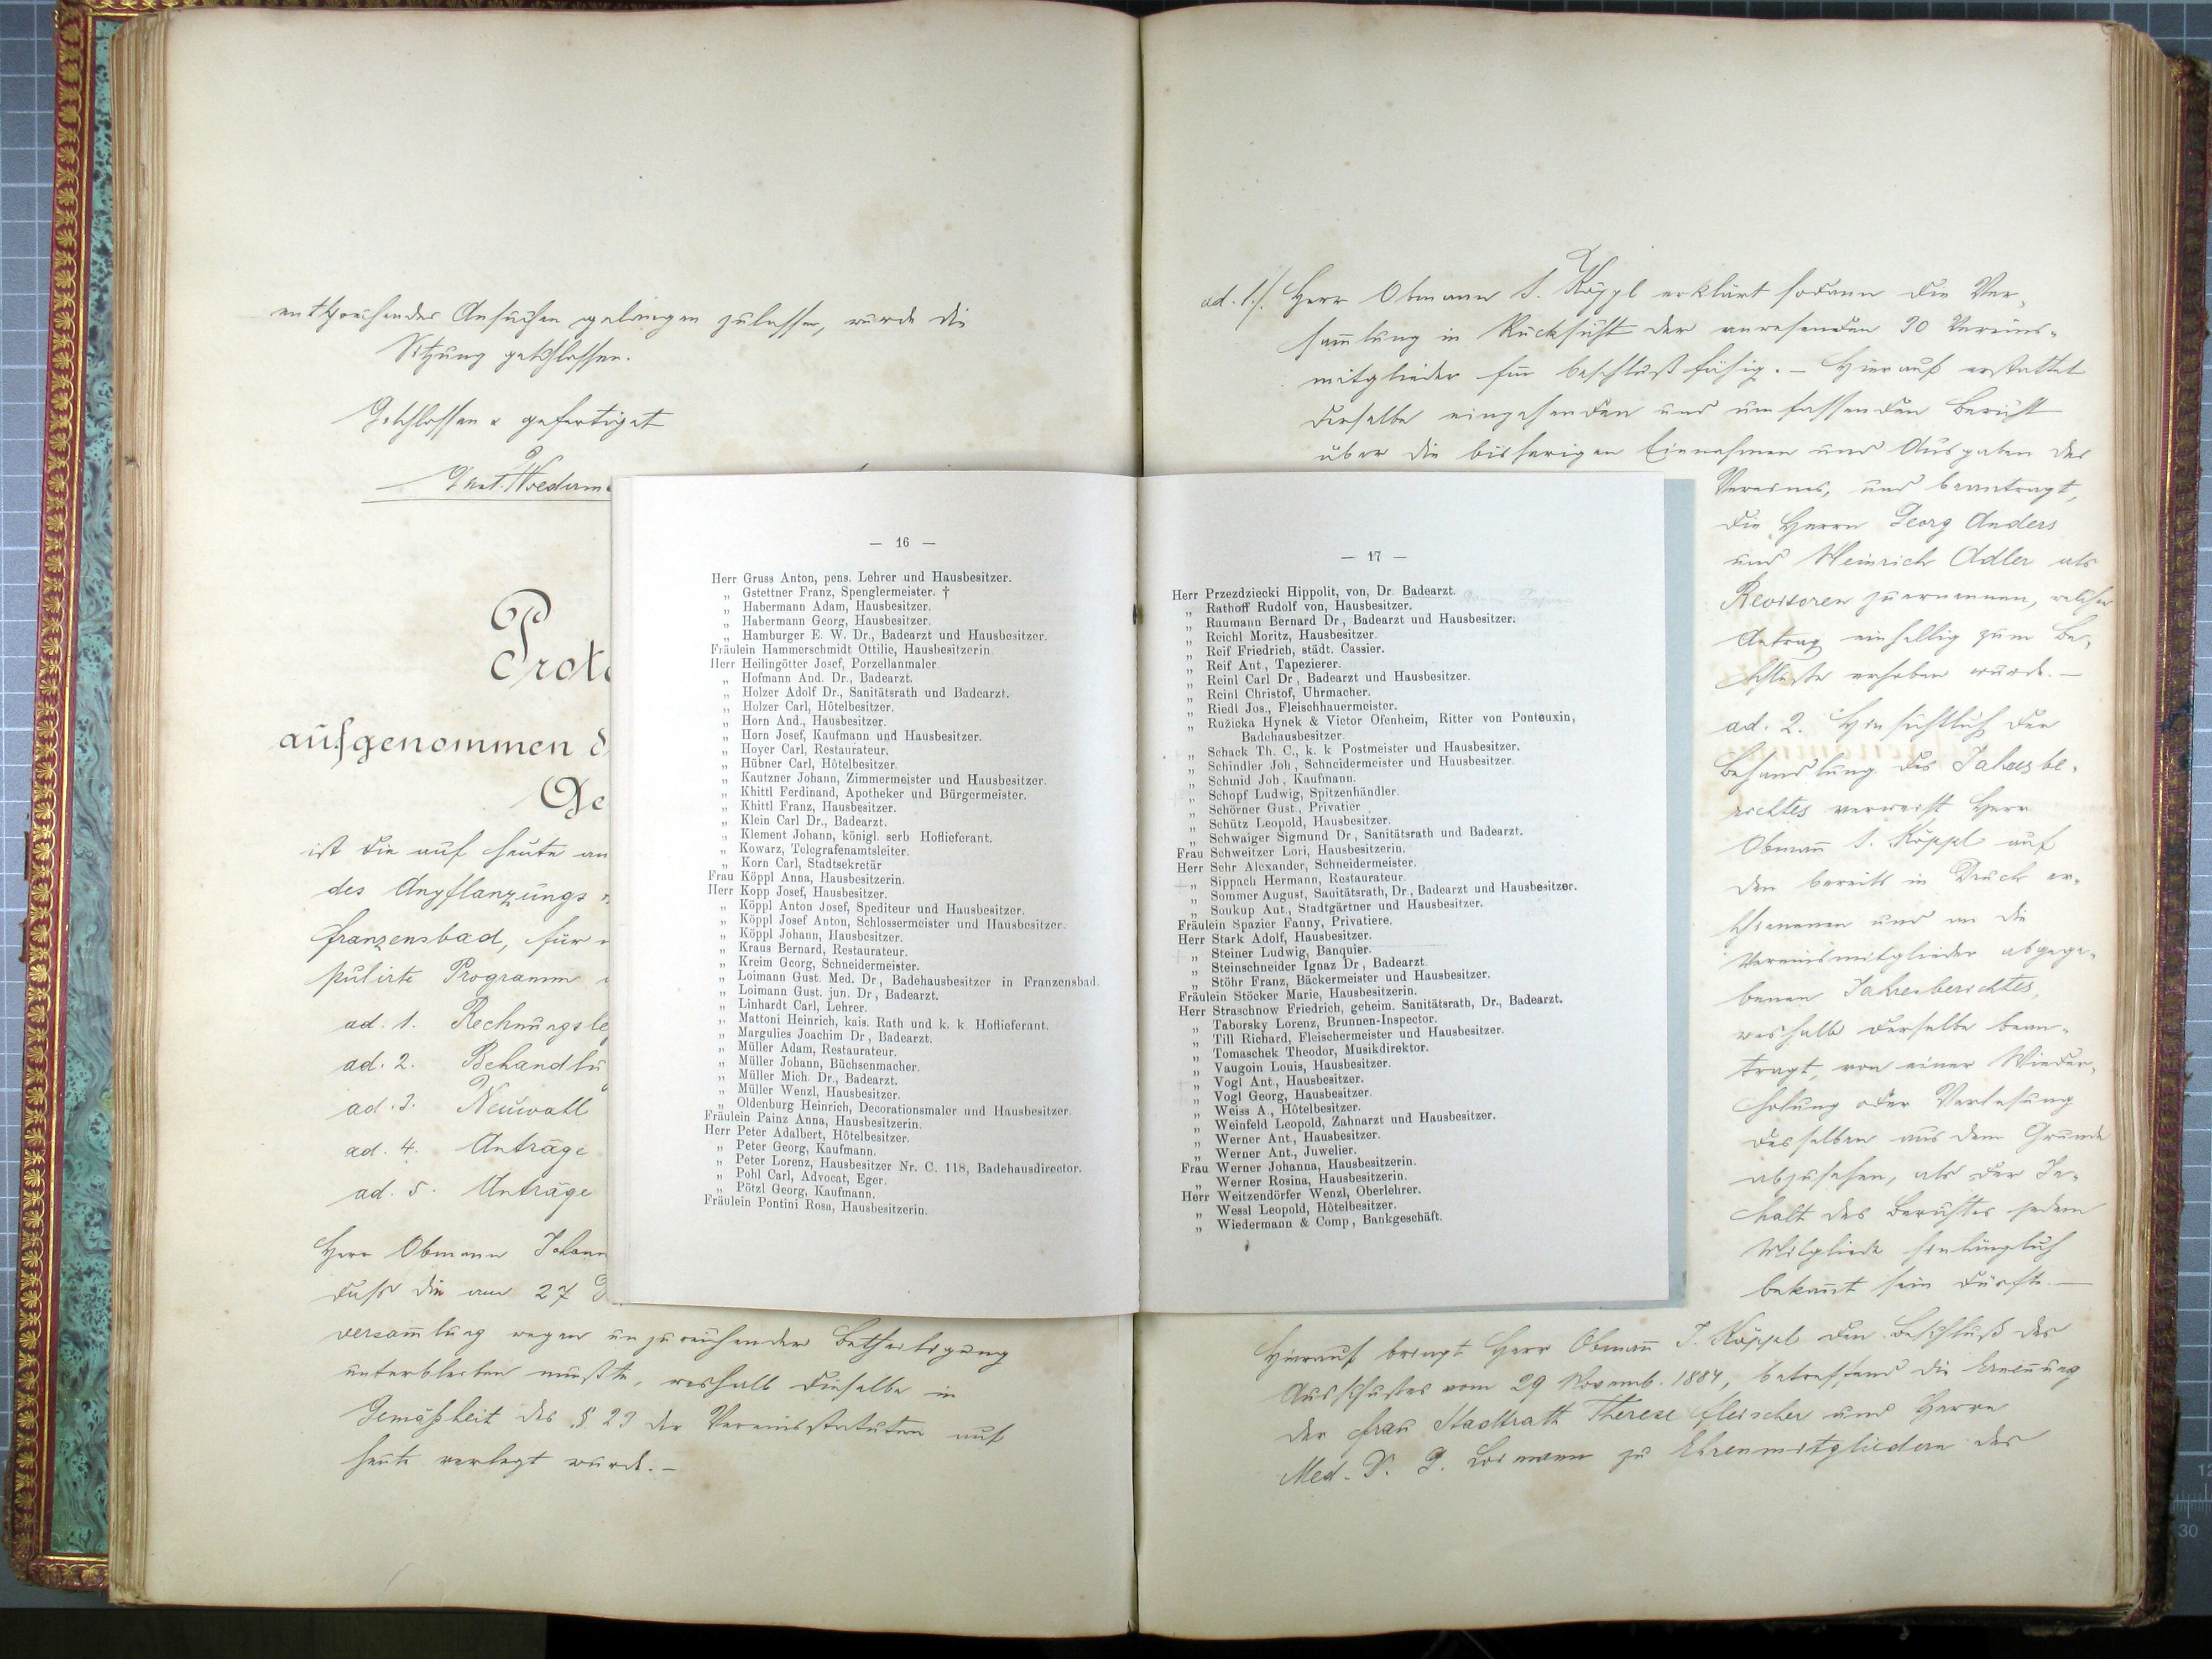 entsprechendes Ansuchen gelangen zulassen, wurde die
Sitzung geschlossen.
Geschlossen & gefertiget
Proto
aufgenommen d
Ge
ist die auf heute an
des Anpflanzungs
Franzensbad, für
pulirte Programm
ad. 1. Rechnungsle
ad. 2. Behandlu
ad. 3. Neuwahl
ad. 4. Anträge
ad. 5. Anträge
Herr Obmann Johann
daß die am 27
versam̅lung wegen unzureichender Betheiligung
unterbleiben mußte, weshalb dieselbe in
Gemäßheit des § 23 der Vereinsstatuten auf
heute verlegt wurde. —
— 16 —
Herr Gruss Anton, pens. Lehrer und Hausbesitzer.
„ Gstettner Franz, Spenglermeister. †
„ Habermann Adam, Hausbesitzer.
„ Habermann Georg, Hausbesitzer.
„ Hamburger E. W. Dr., Badearzt und Hausbesitzer.
Fräulein Hammerschmidt Ottilie, Hausbesitzerin.
Herr Heilingötter Josef, Porzellanmaler.
„ Hofmann And. Dr., Badearzt.
„ Holzer Adolf Dr., Sanitätsrath und Badearzt.
„ Holzer Carl, Hôtelbesitzer.
„ Horn And., Hausbesitzer.
„ Horn Josef, Kaufmann und Hausbesitzer.
„ Hoyer Carl, Restaurateur.
„ Hübner Carl, Hôtelbesitzer.
„ Kautzner Johann, Zimmermeister und Hausbesitzer.
„ Khittl Ferdinand, Apotheker und Bürgermeister.
„ Khittl Franz, Hausbesitzer.
„ Klein Carl Dr., Badearzt.
„ Klement Johann, königl. serb Hoflieferant.
„ Kowarz, Telegrafenamtsleiter.
„ Korn Carl, Stadtsekretär
Frau Köppl Anna, Hausbesitzerin.
Herr Kopp Josef, Hausbesitzer.
„ Köppl Anton Josef, Spediteur und Hausbesitzer.
„ Köppl Josef Anton, Schlossermeister und Hausbesitzer.
„ Köppl Johann, Hausbesitzer.
„ Kraus Bernard, Restaurateur.
„ Kreim Georg, Schneidermeister.
„ Loimann Gust. Med. Dr., Badehausbesitzer in Franzensbad.
„ Loimann Gust. jun. Dr., Badearzt.
„ Linhardt Carl, Lehrer.
„ Mattoni Heinrich, kais. Rath und k. k. Hoflieferant.
„ Margulies Joachim Dr, Badearzt.
„ Müller Adam, Restaurateur.
„ Müller Johann, Büchsenmacher.
„ Müller Mich. Dr., Badearzt.
„ Müller Wenzl, Hausbesitzer.
„ Oldenburg Heinrich, Decorationsmaler und Hausbesitzer.
Fräulein Painz Anna, Hausbesitzerin.
Herr Peter Adalbert, Hôtelbesitzer.
„ Peter Georg, Kaufmann.
„ Peter Lorenz, Hausbesitzer Nr. C. 118, Badehausdirector.
„ Pohl Carl, Advocat, Eger.
„ Pötzl Georg, Kaufmann.
Fräulein Pontini Rosa, Hausbesitzerin.
— 17 —
Herr Przezdziecki Hippolit, von, Dr. Badearzt.
„ Rathoff Rudolf von, Hausbesitzer.
„ Raumann Bernard Dr., Badearzt und Hausbesitzer.
„ Reichl Moritz, Hausbesitzer.
„ Reif Friedrich, städt. Cassier.
„ Reif Ant., Tapezierer.
„ Reinl Carl Dr, Badearzt und Hausbesitzer.
„ Reinl Christof, Uhrmacher.
„ Riedl Jos., Fleischhauermeister.
„ Ružicka Hynek & Victor Ofenheim, Ritter von Ponteuxin,
Badehausbesitzer.
„ Schack Th. C., k. k Postmeister und Hausbesitzer.
„ Schindler Joh, Schneidermeister und Hausbesitzer.
„ Schmid Joh, Kaufmann.
„ Schopf Ludwig, Spitzenhändler.
„ Schörner Gust., Privatier
„ Schütz Leopold, Hausbesitzer.
„ Schwaiger Sigmund Dr, Sanitätsrath und Badearzt.
Frau Schweitzer Lori, Hausbesitzerin.
Herr Sehr Alexander, Schneidermeister.
„ Sippach Hermann, Restaurateur.
„ Sommer August, Sanitätsrath, Dr., Badearzt und Hausbesitzer.
„ Soukup Ant., Stadtgärtner und Hausbesitzer.
Fräulein Spazier Fanny, Privatiere.
Herr Stark Adolf, Hausbesitzer.
„ Steiner Ludwig, Banquier.
„ Steinschneider Ignaz Dr, Badearzt.
„ Stöhr Franz, Bäckermeister und Hausbesitzer.
Fräulein Stöcker Marie, Hausbesitzerin.
Herr Straschnow Friedrich, geheim. Sanitätsrath, Dr., Badearzt.
„ Taborsky Lorenz, Brunnen-Inspector.
„ Till Richard, Fleischermeister und Hausbesitzer.
„ Tomaschek Theodor, Musikdirektor.
„ Vaugoin Louis, Hausbesitzer.
„ Vogl Ant., Hausbesitzer.
„ Vogl Georg, Hausbesitzer.
„ Weiss A., Hôtelbesitzer.
„ Weinfeld Leopold, Zahnarzt und Hausbesitzer.
„ Werner Ant., Hausbesitzer.
„ Werner Ant., Juwelier.
Frau Werner Johanna, Hausbesitzerin.
„ Werner Rosina, Hausbesitzerin.
Herr Weitzendörfer Wenzl, Oberlehrer.
„ Wessl Leopold, Hôtelbesitzer.
„ Wiedermann & Comp, Bankgeschäft.
ad. 1./. Herr Obmann J. Köppl erklärt sodann die Ver-
sam̅lung in Rücksicht der anwesenden 30 Vereins-
mitglieder für beschlußfähig. — Hierauf erstattet
derselbe eingehenden und umfassenden Bericht
über die bisherigen Einnahmen und Ausgaben des
Vereines, und beantragt,
die Herrn Georg Anders
und Heinrich Adler als
Revisoren zu ernennen, welcher
Antrag einhellig zum Be-
schluße erhoben wurde. —
ad. 2. Hinsichtlich der
Behandlung des Jahresbe-
richtes verweist Herr
Obman̅ J. Köppl auf
den bereits in Druck er-
schienenen und an die
Vereinsmitglieder abgege-
benen Jahresberichtes,
weshalb derselbe bean-
tragt, von einer Wieder-
holung oder Verlesung
desselben aus dem Grunde
abzusehen, als der In-
halt des Berichtes jedem
Mitgliede hinlänglich
bekan̅t sein dürfte. —
Hierauf bringt Herr Obman̅ J. Köppl den Beschluß des
Ausschußes vom 29 Novemb. 1884, betreffend die Ernen̅ung
der Frau Stadtrath Therese Fleischer und Herrn
Med. Dr. G. Loimann zu Ehrenmitgliedern des
30